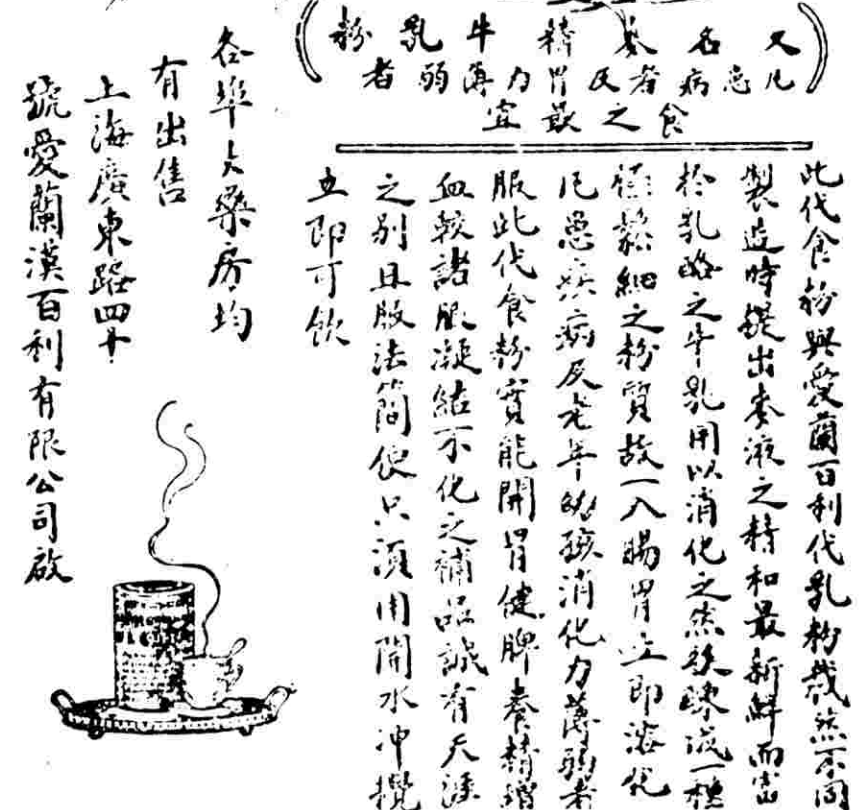 又名麥精牛乳粉
凡患病者及胃力薄弱者
食之最宜
此代食粉與愛蘭百利代乳粉截然不同
製造時提出麥液之精和最新鮮而富
於乳酪之牛乳用以消化之然後煉成一種
極鬆細之粉質故一入腸胃立即溶化
凡患疾病及老年幼孩消化力薄弱者
服此代食粉實能開胃健脾養精增
血較諸服凝結不化之補品誠有天淵
之別且服法簡便只須用開水沖攪
立即可飲
各埠大藥房均
有出售
上海廣東路四十
號愛蘭漢百利有限公司啟